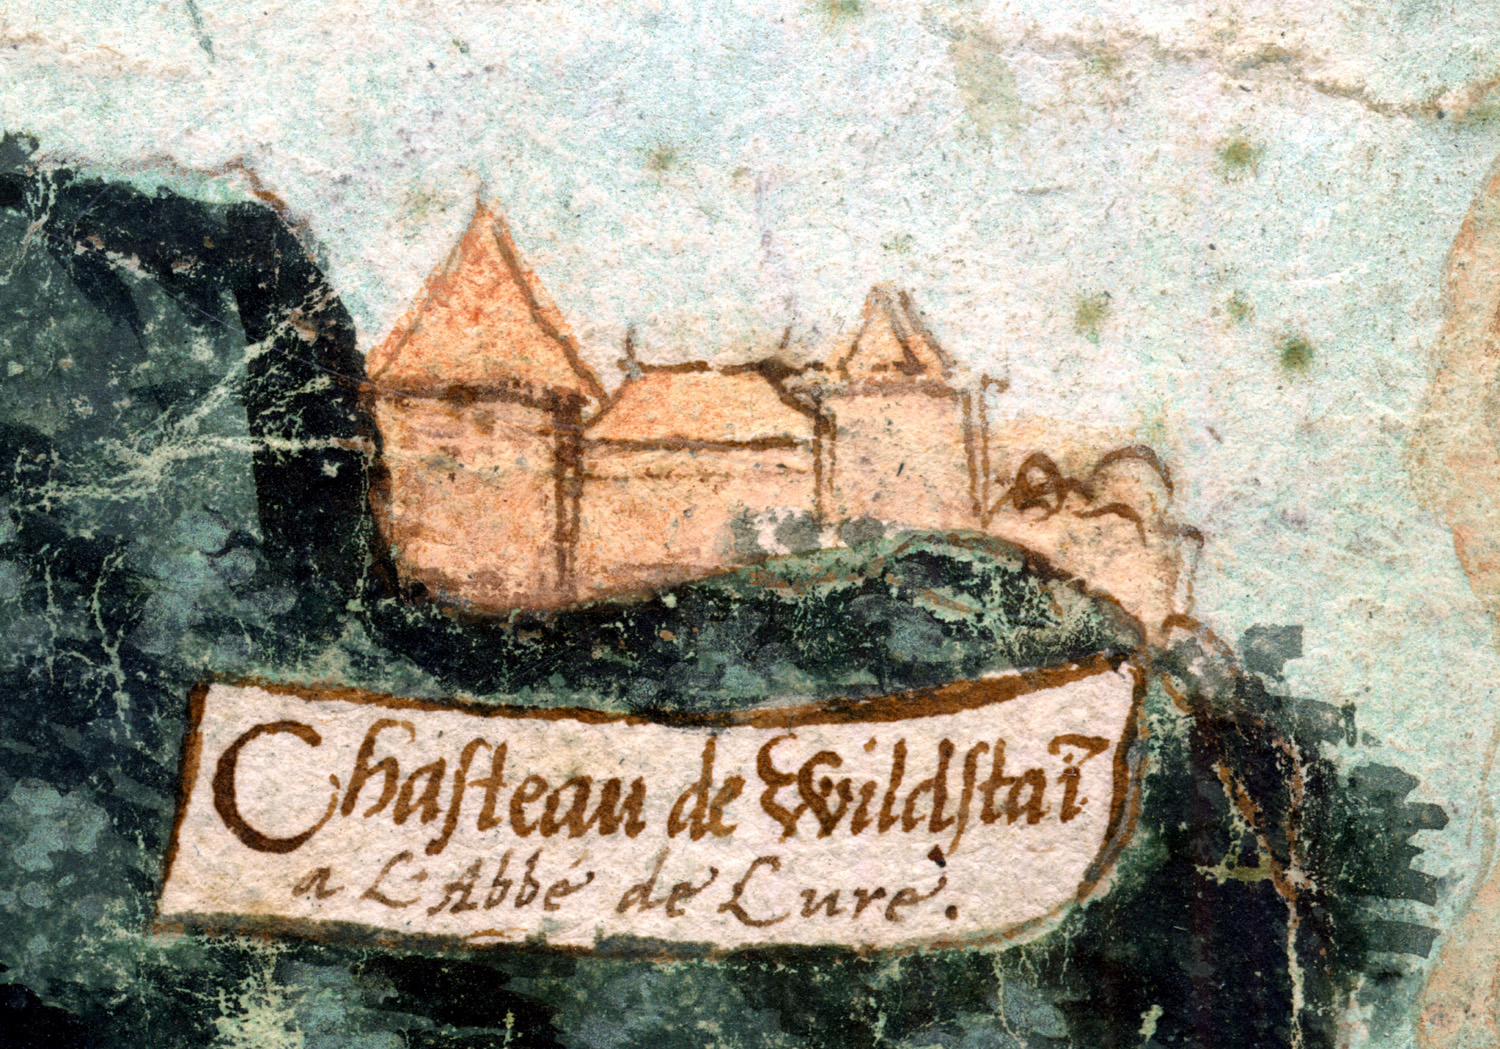 Chasteau de Wildstaī
a L'Abbé de Lure.